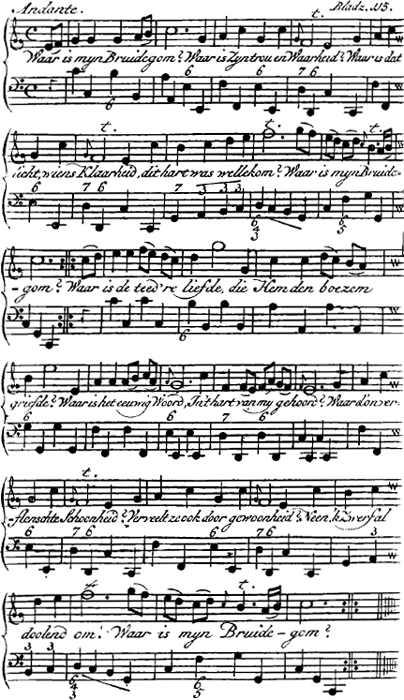 Andante. Bladz. 115.
t.
Waar is myn Bruidegom? Waar is Zyn trou en Waarheid? Waar is dat
6 6 6 7 6
t. t. t.
licht, wiens Klaarheid, dit hart was wellekom? Waar is myn Bruide-
6 7 6 7 6 3 3 3 6 4 3 6 5
-gom? Waar is de teed're liefde, die Hem den boezem
6 6
griefde? Waar is het eeuwig Woord, In't hart van my gehoord? Waar d'onver-
6 6 6 7 6
t.
-flenschte Schoonheid? Verveelt ze ook door gewoonheid? Neen, 'k Zwerf al
6 7 6 6 7 6 3
t. t.
doolend om: Waar is myn Bruide-gom?
3 3 6 4 3 6 5